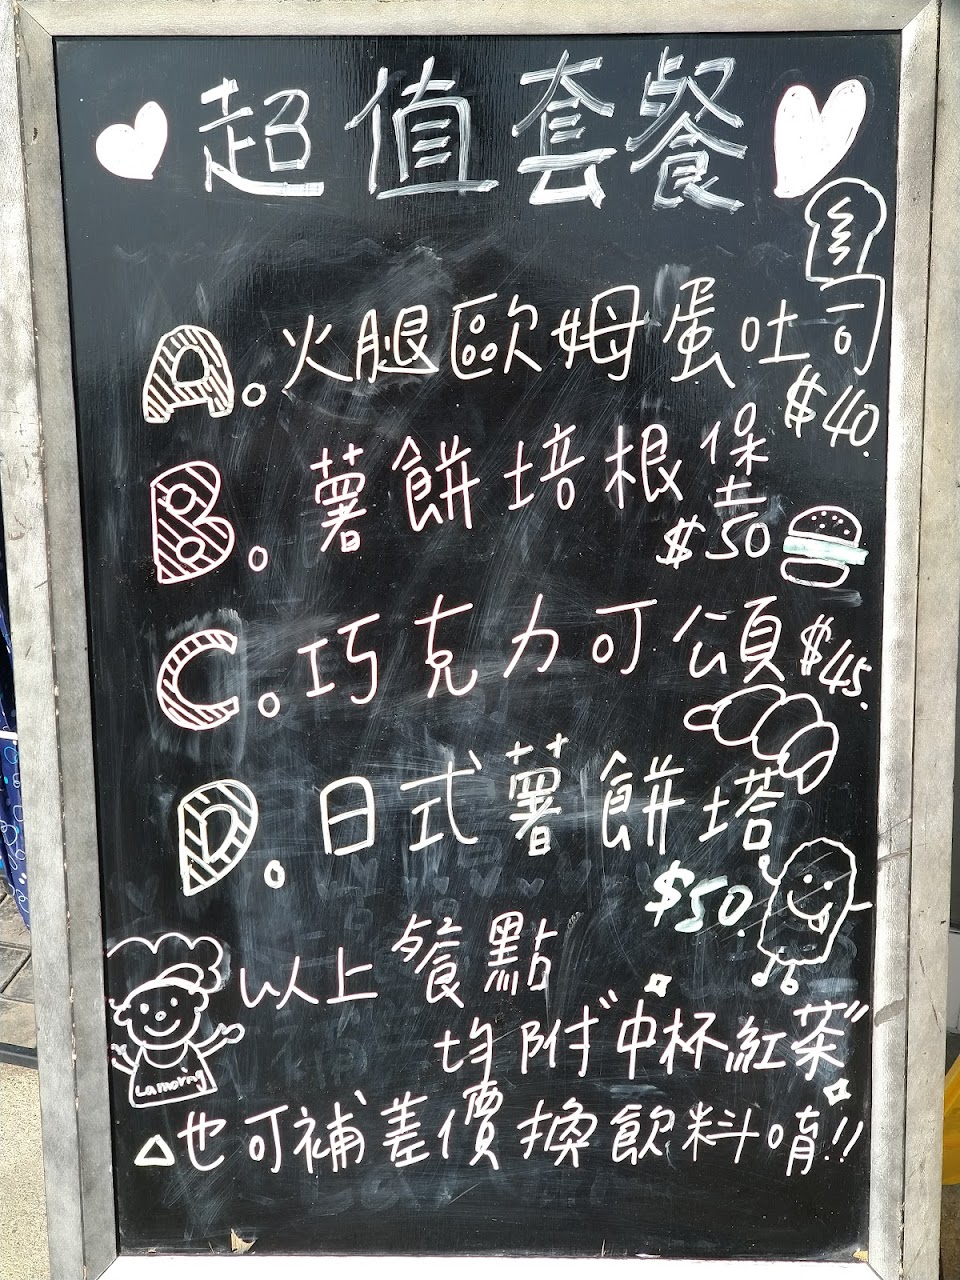 超值套餐
A.火腿歐姆蛋吐司
$40.
B.薯餅培根堡
$50
C.巧克力可頌 $45.
D.日式薯餅塔
$50.
以上餐點
均附"中杯紅茶"
Lamoring
△也可補差價換飲料唷!!